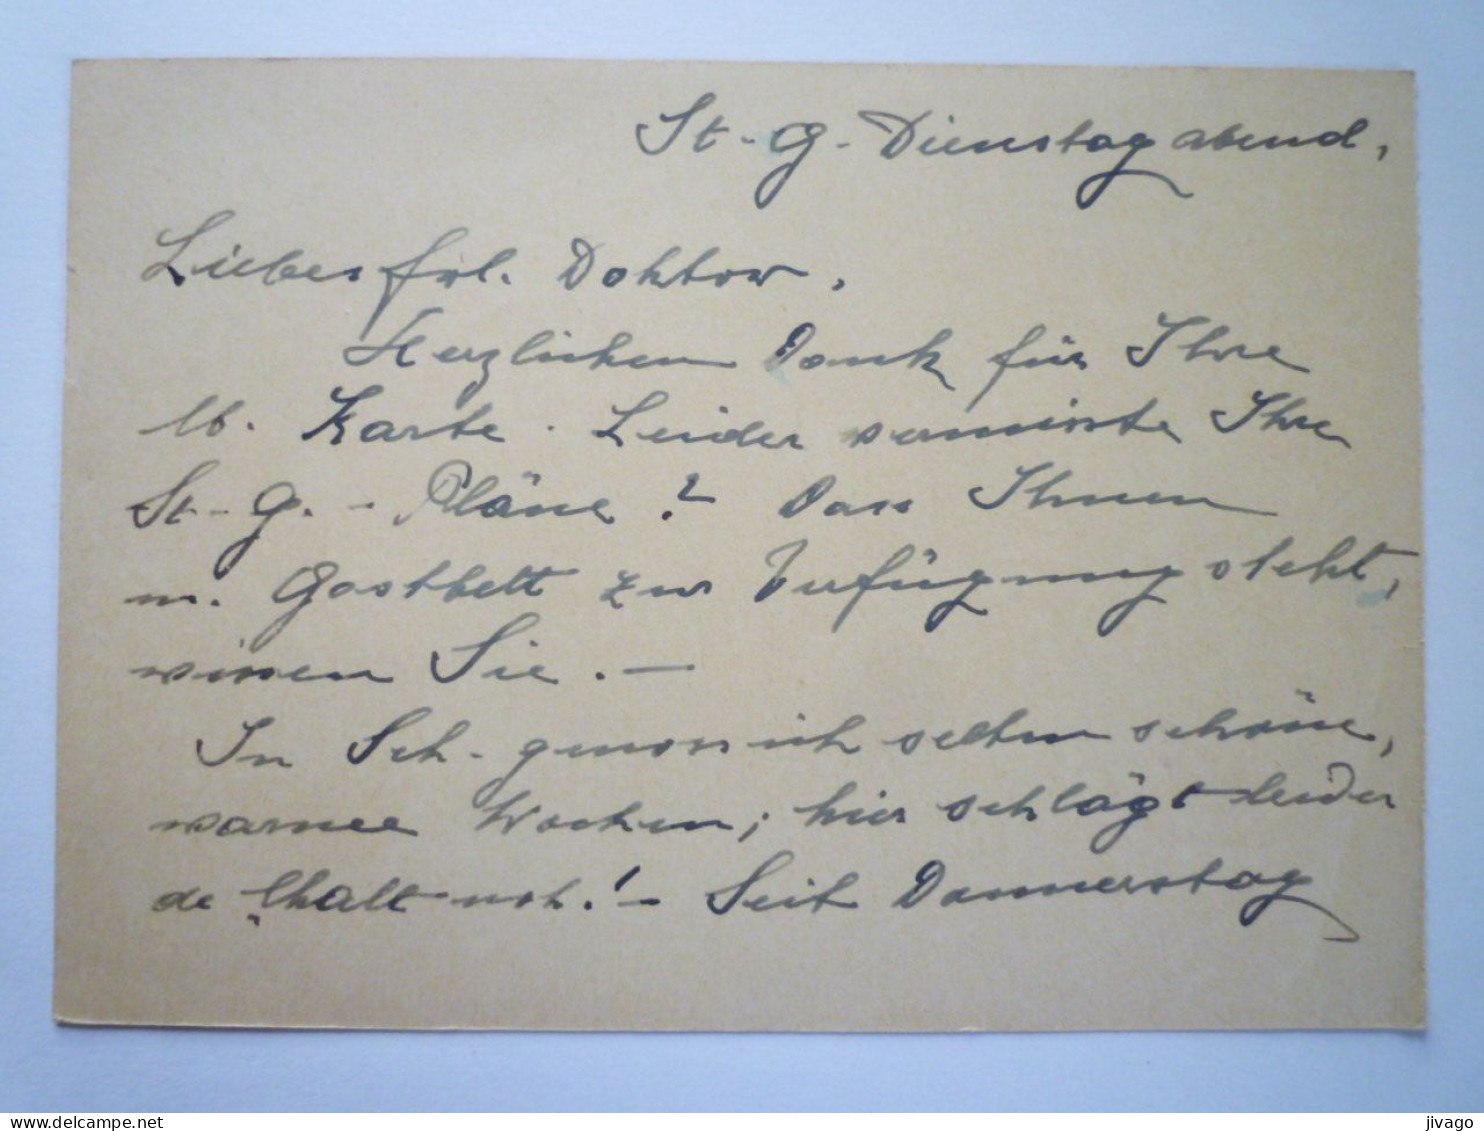 St-G-Dienstag abend,
Liebes frl. Doktor,
Herzlichen Dank für Ihre
lb. Karte. Leider vermisste Ihre
St-G.- Pläne? Dass Ihnen
m. Gastbett zur Verfügung steht,
wissen Sie.—
In Sch- genoss ich selten schöne,
warme Wochen; hier schlägt leider
de "Chalt no!- Seit Donnerstag
delcampe.net
jivago